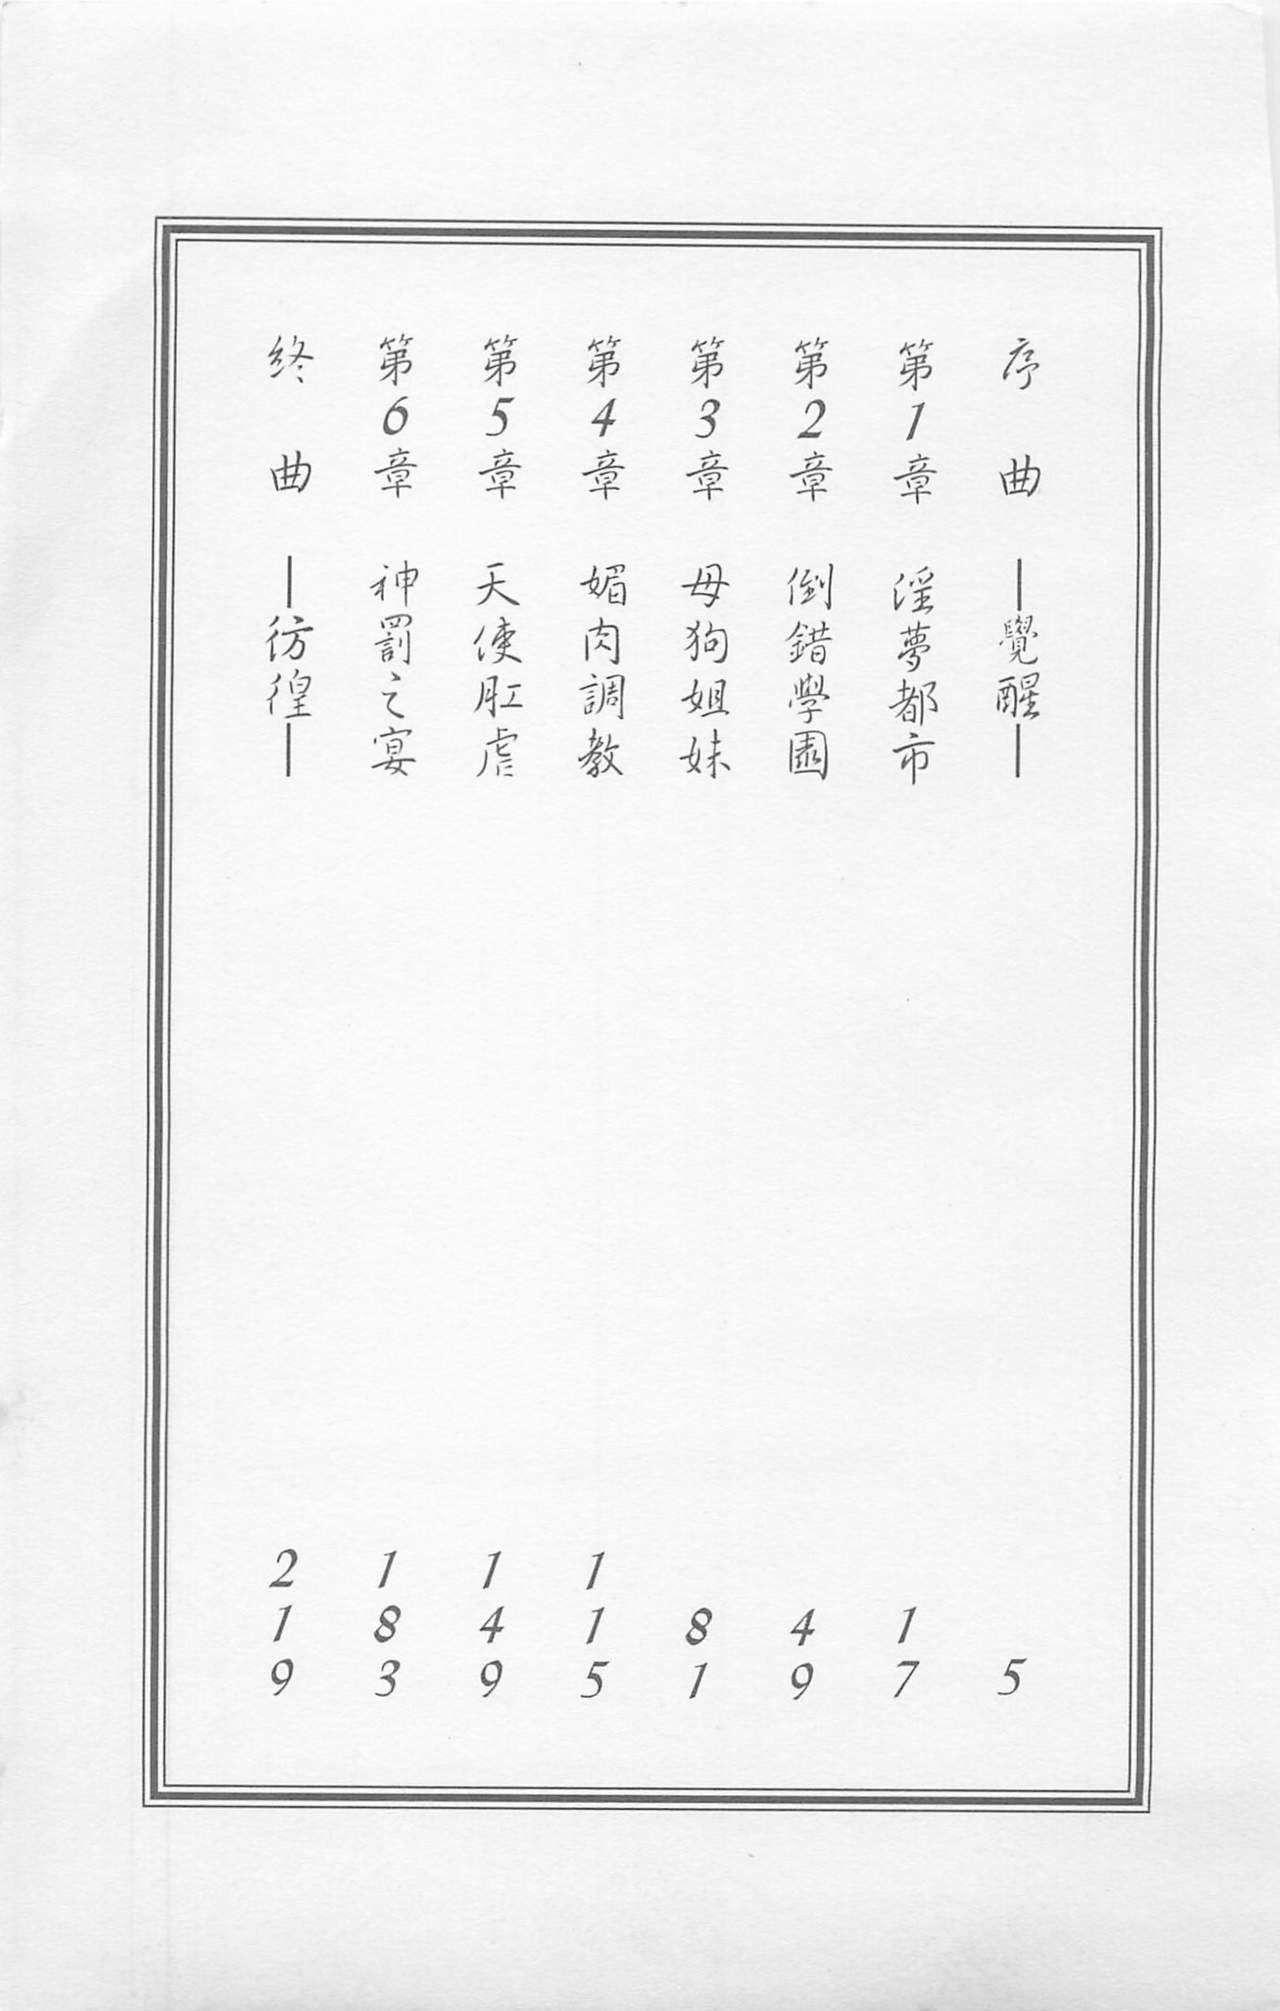 序曲 —覺醒— 5
第1章 淫夢都市 17
第2章 倒錯學園 49
第3章 母狗姐妹 81
第4章 媚肉調教 115
第5章 天使肛虐 149
第6章 神罰之宴 183
終曲 —彷徨— 219